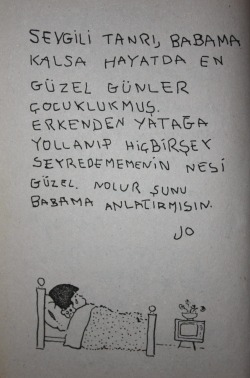 SEVGİLİ TANRI, BABAMA
KALSA HAYATDA EN
GÜZEL GÜNLER
ÇOCUKLUKMUŞ.
ERKENDEN YATAĞA
YOLLANIP HİÇBİRŞEY
SEYREDEMEMENİN NESİ
GÜZEL. NOLUR ŞUNU
BABAMA ANLATIRMISIN.
JO